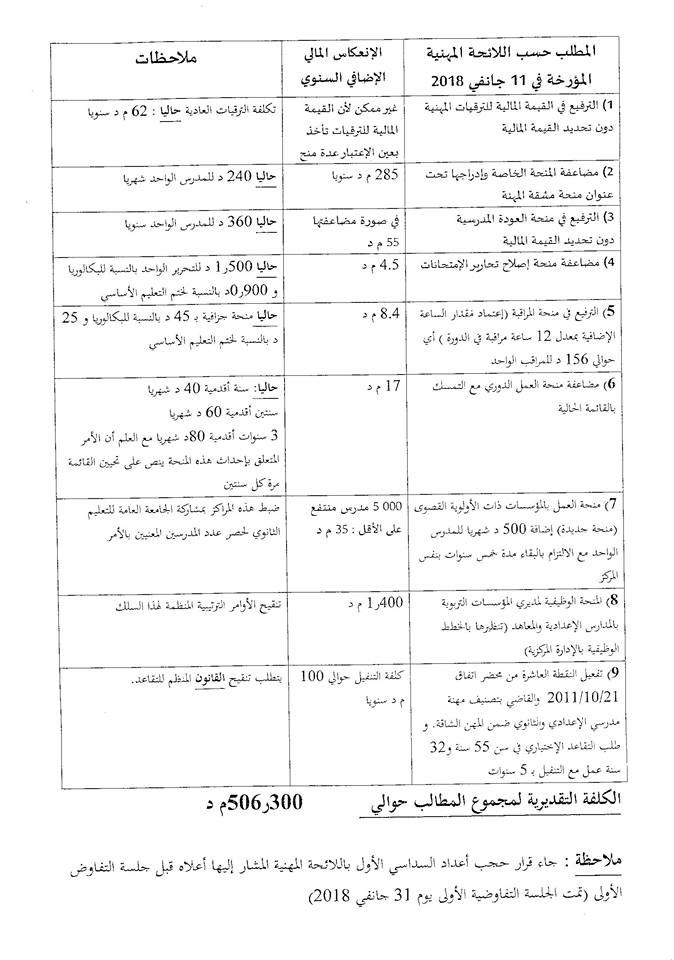 المطلب حسب اللائحة المهنية
المؤرخة في 11 جانفي 2018
الإنعكاس المالي
الإضافي السنوي
ملاحظات
1) الترفيع في القيمة المالية للترقيات المهنية
دون تحديد القيمة المالية
غير ممكن لأن القيمة
المالية للترقيات تأخذ
بعين الإعتبار عدة منح
تكلفة الترقيات العادية حاليا : 62 م د سنويا
2) مضاعفة المنحة الخاصة وإدراجها تحت
عنوان منحة مشقة المهنة
285 م د سنويا
حاليا 240 د للمدرس الواحد شهريا
3) الترفيع في منحة العودة المدرسية
دون تحديد القيمة المالية
في صورة مضاعفتها
55 م د
حاليا 360 د للمدرس الواحد سنويا
4) مضاعفة منحة إصلاح تحارير الإمتحانات
4.5 م د
حاليا 1٫500 د للتحرير الواحد بالنسبة للبكالوريا
و 0٫900د بالنسبة لختم التعليم الأساسي
5) الترفيع في منحة المراقبة (إعتماد مقدار الساعة
الإضافية بمعدل 12 ساعة مراقبة في الدورة ) أي
حوالي 156 د للمراقب الواحد
8.4 م د
حاليا منحة جزافية بـ 45 د بالنسبة للبكالوريا و 25
د بالنسبة لختم التعليم الأساسي
6) مضاعفة منحة العمل الدوري مع التمسك
بالقائمة الحالية
17 م د
حاليا: سنة أقدمية 40 د شهريا
سنتين أقدمية 60 د شهريا
3 سنوات أقدمية 80د شهريا مع العلم أن الأمر
المتعلق بإحداث هذه المنحة ينص على تحيين القائمة
مرة كل سنتين
7) منحة العمل بالمؤسسات ذات الأولوية القصوى
(منحة جديدة) إضافة 500 د شهريا للمدرس
الواحد مع الالتزام بالبقاء مدة خمس سنوات بنفس
المركز
5 000 مدرس منتفع
على الأقل : 35 م د
ضبط هذه المراكز بمشاركة الجامعة العامة للتعليم
الثانوي لحصر عدد المدرسين المعنيين بالأمر
8) المنحة الوظيفية لمديري المؤسسات التربوية
بالمدارس الإعدادية والمعاهد (تنظيرها بالخطط
الوظيفية بالإدارة المركزية)
1٫400 م د
تنقيح الأوامر الترتيبية المنظمة لهذا السلك
9) تفعيل النقطة العاشرة من محضر اتفاق
2011/10/21 والقاضي بتصنيف مهنة
مدرسي الإعدادي والثانوي ضمن المهن الشاقة. و
طلب التقاعد الإختياري في سن 55 سنة و32
سنة عمل مع التنفيل بـ 5 سنوات
كلفة التنفيل حوالي 100
م د سنويا
يتطلب تنقيح القانون المنظم للتقاعد.
الكلفة التقديرية لمجموع المطالب حوالي 506٫300م د
ملاحظة : جاء قرار حجب أعداد السداسي الأول باللائحة المهنية المشار إليها أعلاه قبل جلسة التفاوض
الأولى (تمت الجلسة التفاوضية الأولى يوم 31 جانفي 2018)